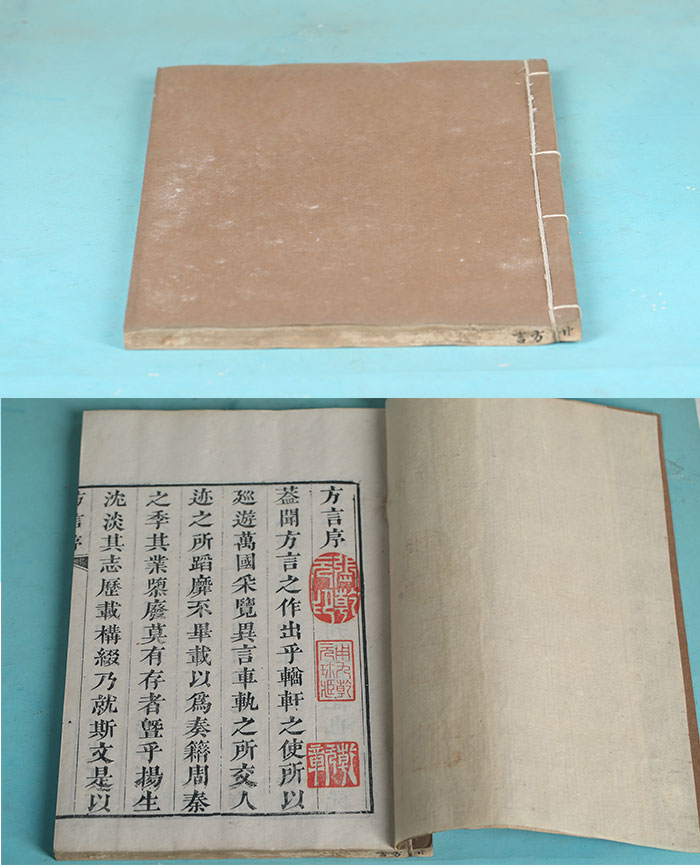 方言
方言序
葢聞方言之作出乎輶軒之使所以
廵遊萬國采覽異言車軌之所交人
迹之所蹈靡不畢載以爲奏籍周秦
之季其業隳廢莫有存者曁乎揚生
沈淡其志歷載構綴乃就斯文是以
方言序